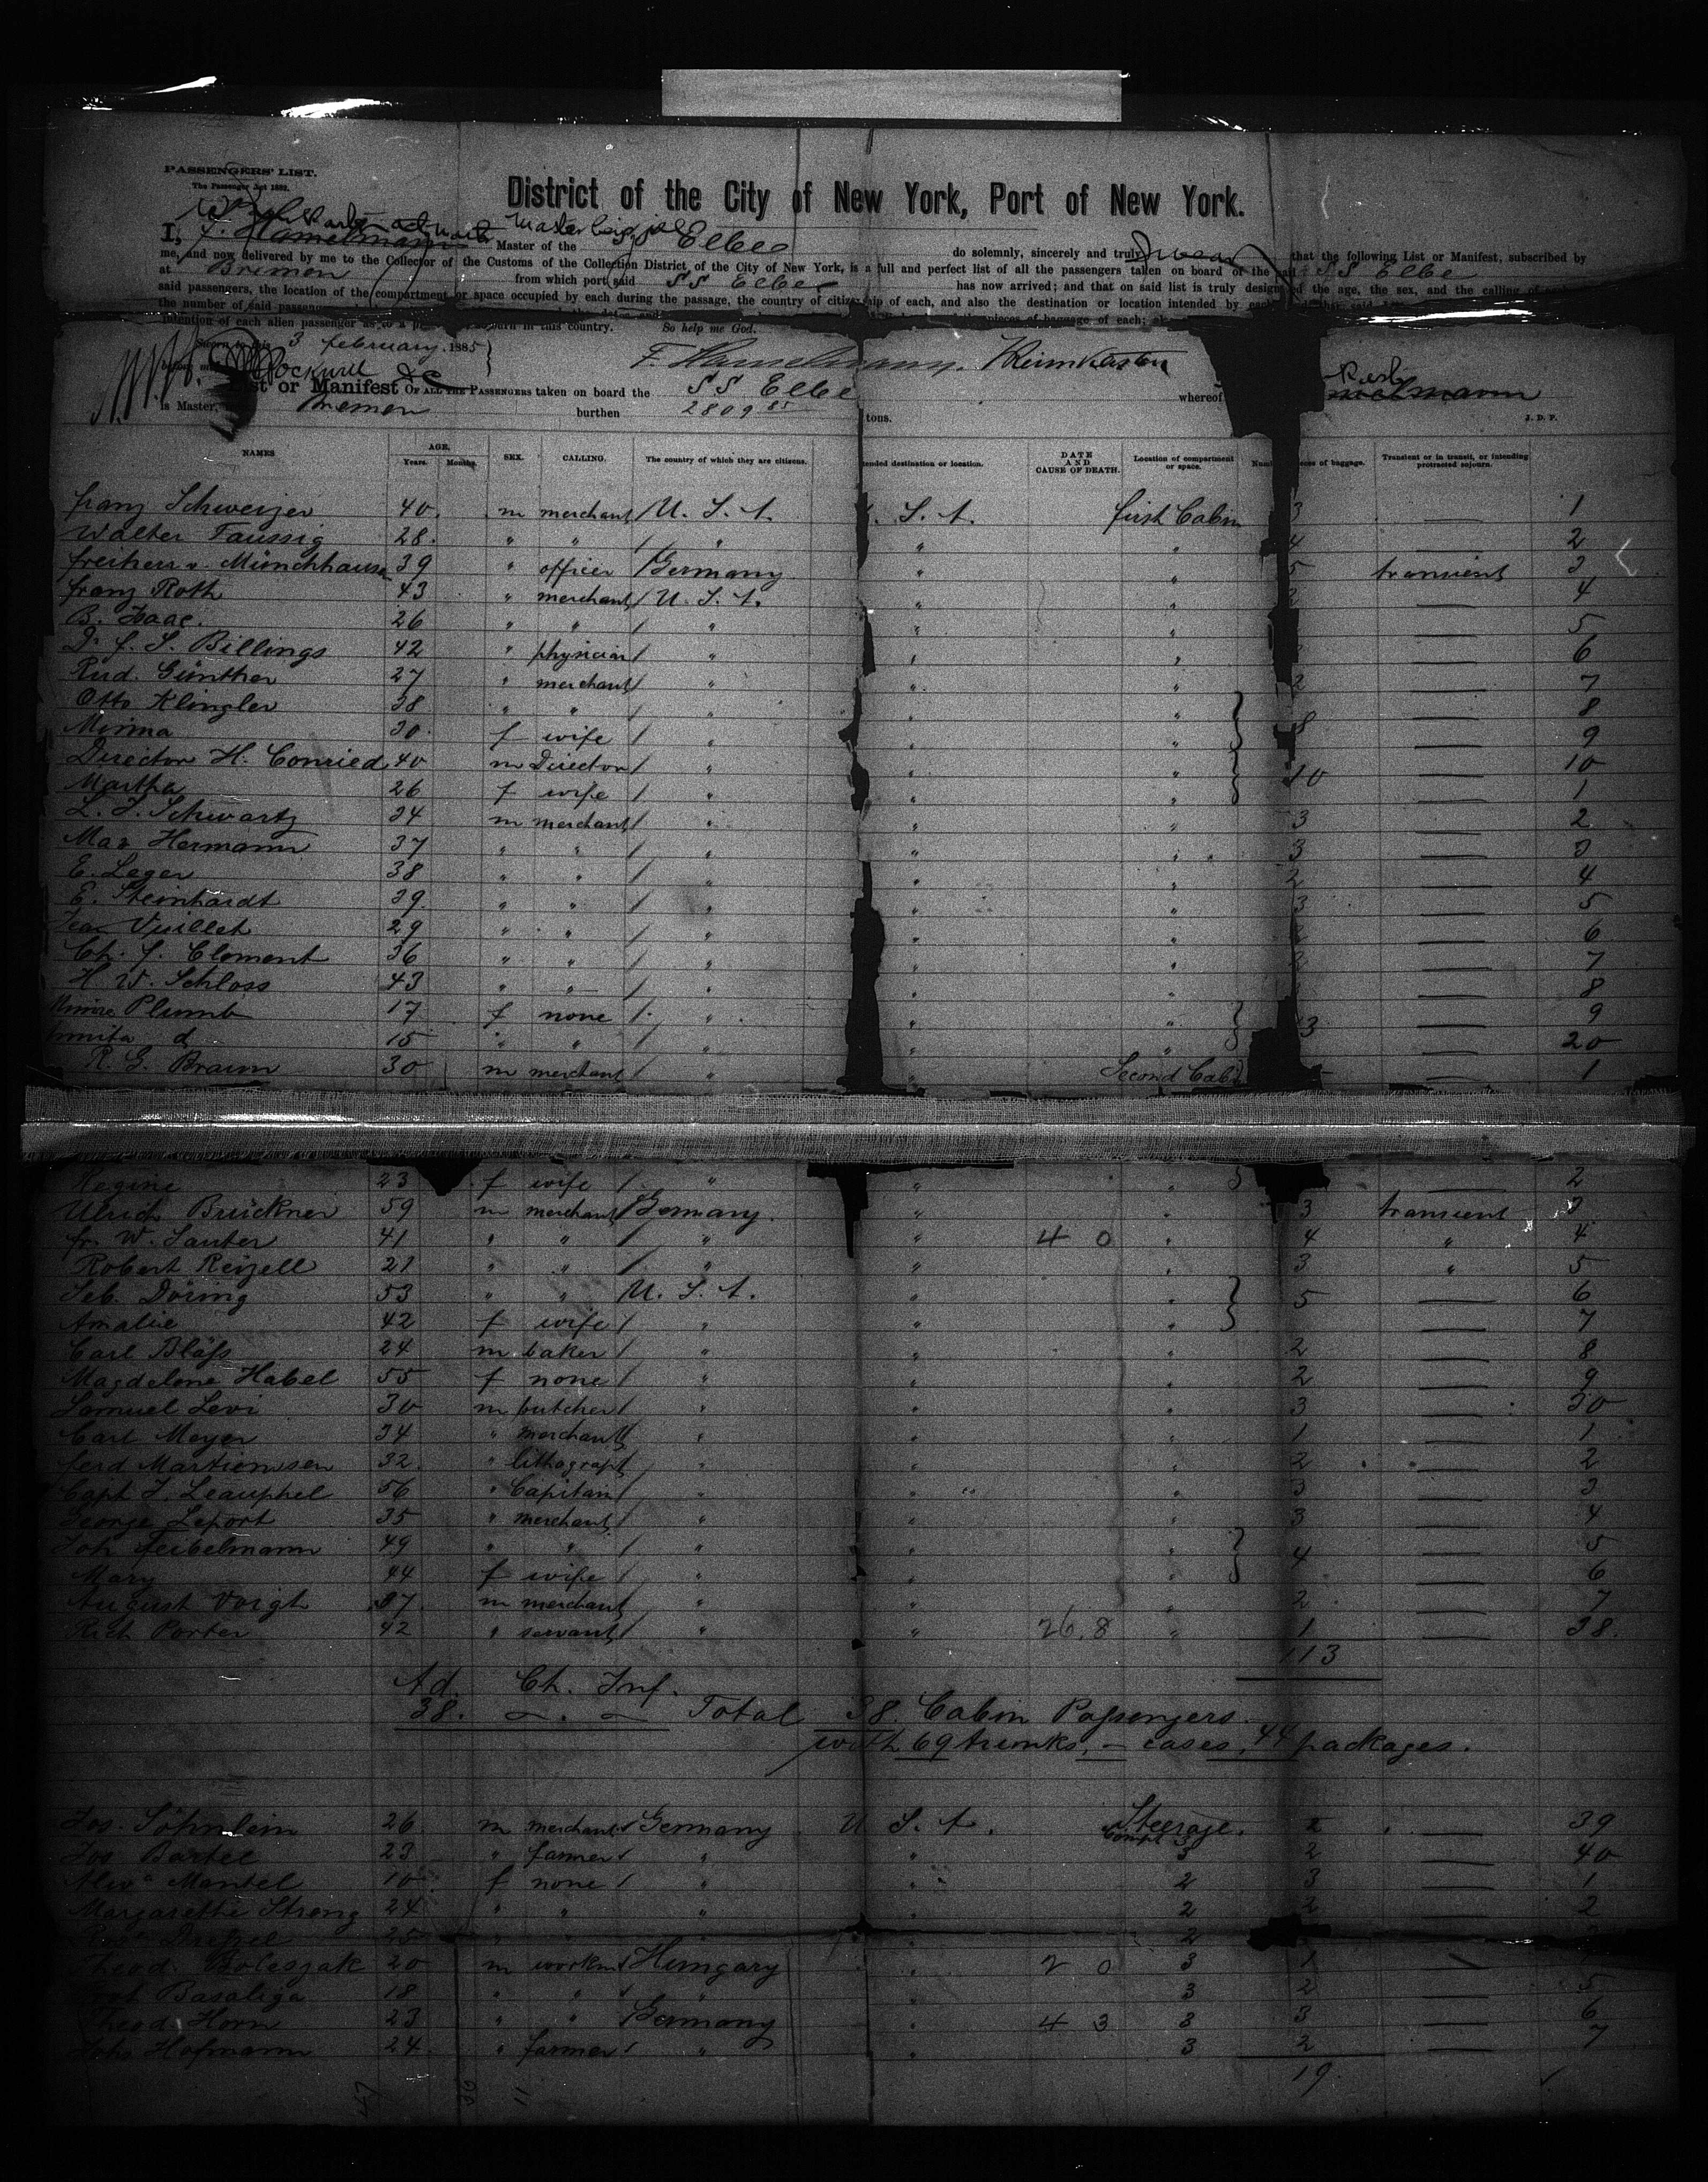 PASSENGERS' LIST.
The Passenger Act 1882.
District of the City of New York, Port of New York.
I, F. Hamelmann Master of the SS Elbe do solemnly, sincerely and truly swear that the following List or Manifest, subscribed by
me, and now delivered by me to the Collector of the Customs of the Collection District of the City of New York, is a full and perfect list of all the passengers taken on board of the said SS Elbe
at Bremen from which port said SS Elbe has now arrived; and that on said list is truly designated the age, the sex, and the calling of
said passengers, the location of the compartment or space occupied by each during the passage, the country of citizenship of each, and also the destination or location intended by
the number of said
intention of each alien passenger as to a in this country. So help me God.
Sworn to this 3 february 1885
F. Hamelmann.
List or Manifest OF ALL THE PASSENGERS taken on board the SS Elbe whereof
is Master, Bremen burthen 2809 85 tons.
J. D. P.
NAMES AGE. Years. Months. SEX. CALLING. The country of which they are citizens. ended destination or location. DATE AND CAUSE OF DEATH. Location of compartment or space. of baggage. Transient or in transit, or intending protracted sojourn.
franz Schweizer 40. m merchant / U. S. A. . S. A. first Cabin 3 — 1
Walter Taussig 28. " " / " " " 4 — 2
freiherr v. Münchhausen 39 " officer / Germany " " 5 transient 3
franz Roth 43 " merchant / U. S. A. " " — 4
B. Isaac. 26 " " / " " " — 5
Dr f. S. Billings 42 " physician / " " " — 6
Rud. Günther 27 " merchant / " " " 2 — 7
Otto Klingler 38 " " / " " " } 8 — 8
Minna 30. f wife / " " " — 9
Director H. Conried 40 m Director / " " " } 10 — 10
Martha 26 f wife / " " " — 1
L. J. Schwartz 34 m merchant / " " " 3 — 2
Max Hermann 37 " " / " " " 3 — 3
E. Leger 38 " " / " " " 2 — 4
E. Steinhardt 39. " " / " " " 3 — 5
Jean Vuillet 29 " " / " " " — 6
Ch. f. Clement 36 " " / " " " 2 — 7
H. W. Schloss 43 " " / " " " — 8
Plumb 17 f none / " " " } 3 — 9
d 15 " " / " " " — 20
R. G. Braun 30 m merchant / " " Second Cab — 1
Regine 23 f wife / " " " — 2
Ulrich Brückner 59 m merchant / Germany " " 3 transient 3
fr. W. Sauter 41 " " / " " 4 0 " 4 " 4
Robert Reizell 21 " " / " " " 3 " 5
Seb. Döring 53 " " U. S. A. " " } 5 — 6
Amalie 42 f wife / " " " — 7
Carl Bläss 24 m baker / " " " 2 — 8
Magdalene Habel 55 f none / " " " 2 — 9
Samuel Levi 30 m butcher / " " " 3 — 30
Carl Meyer 34 " merchant / " " " 1 — 1
ferd Martiensen 32. " lithograph / " " " 2 — 2
Capt J. Leauphel 56 " Capitain / " " " 3 — 3
George Leport 35 " merchant / " " " 3 — 4
Joh feibelmann 49 " " / " " " } 4 — 5
Mary 44 f wife / " " " — 6
August Voigt 37. m merchant / " " " 2 — 7
Rich Porter 42 " servant / " " 26.8 " 1 — 38.
113
Ad. Ch. Inf.
38. — . — Total 38. Cabin Passengers.
with 69 trunks, — cases, 44 packages.
Jos. Söhnlein 26 m merchant / Germany U S. A. Steerage. — 39
Compt
Jos Bartel 23 " farmer / " " 3 2 — 40
Mentel 10 f none / " " 2 3 — 1
Margarethe Streng 24 " " " " 2 2 — 2
25 " " " " 2
Theod. Boleszak 20 m workm / Hungary " 2 0 3 1 —
Basaliga 18 " " / " " 3 2 — 5
Theod. Horn 23 " " Germany " 4 3 3 3 — 6
Hofmann 24. " farmer / " " 3 2 — 7
19.
47 36 11